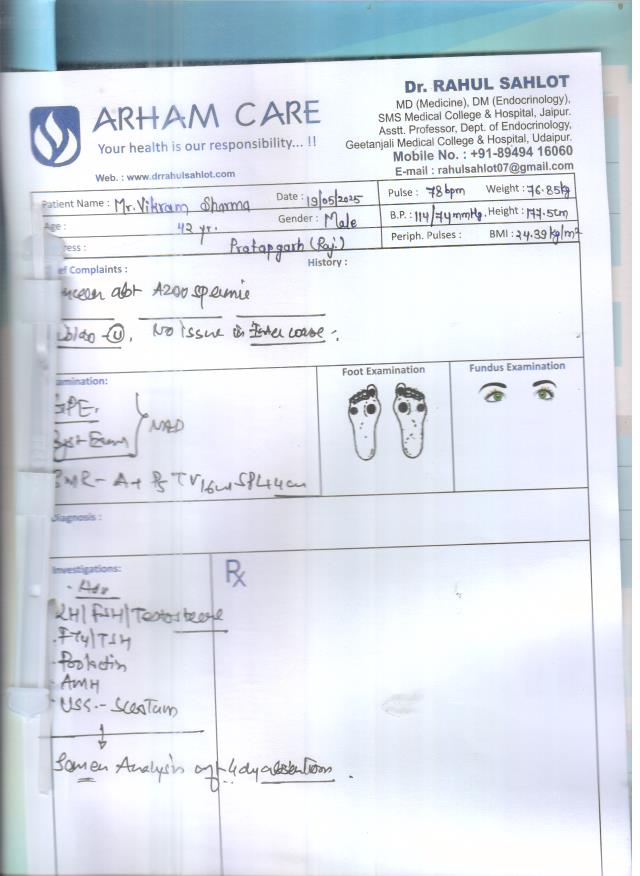 Dr. RAHUL SAHLOT
MD (Medicine), DM (Endocrinology),
SMS Medical College & Hospital, Jaipur.
Asstt. Professor, Dept. of Endocrinology,
Geetanjali Medical College & Hospital, Udaipur.
Mobile No. : +91-89494 16060
E-mail : rahulsahlot07@gmail.com
ARHAM CARE
Your health is our responsibility... !!
Web. : www.drrahulsahlot.com
Patient Name : Mr. Vikram Sharma Date : 19/05/2025 Pulse : 78 bpm Weight : 76.85kg
Age : 42 yr. Gender : Male B.P. : 114/74 mmHg. Height : 177.5cm
ress : Pratapgarh (Raj.) Periph. Pulses : BMI : 24.39 kg/m²
ef Complaints : History :
abt Azoospermie
No Issue in Inter course.
amination: Foot Examination Fundus Examination
GPE.
Syst Exam NAD
SMR - A+ P5 TV 16ml SPL 4.4cm
Diagnosis :
Investigations: Rx
Adv
LH/FSH/Testosterone
FT4/TSH
Prolactin
AMH
USG - Scrotum
Semen Analysis aft 4 dy abstention.